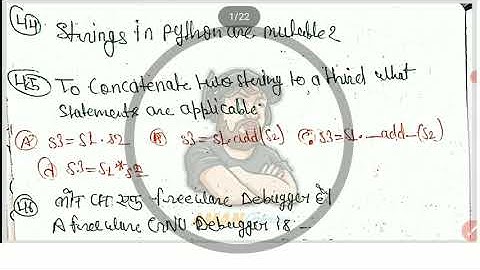 1/22
44 Strings in python are mutable?
45 To Concatenate two string to a third what
statements are applicable.
A S3=S1.S2 B S3=S1.add(S2) C S3=S1.__add__(S2)
D S3=S1*S2
46 कौन सा एक freeware Debugger है।
A freeware GNU Debugger is